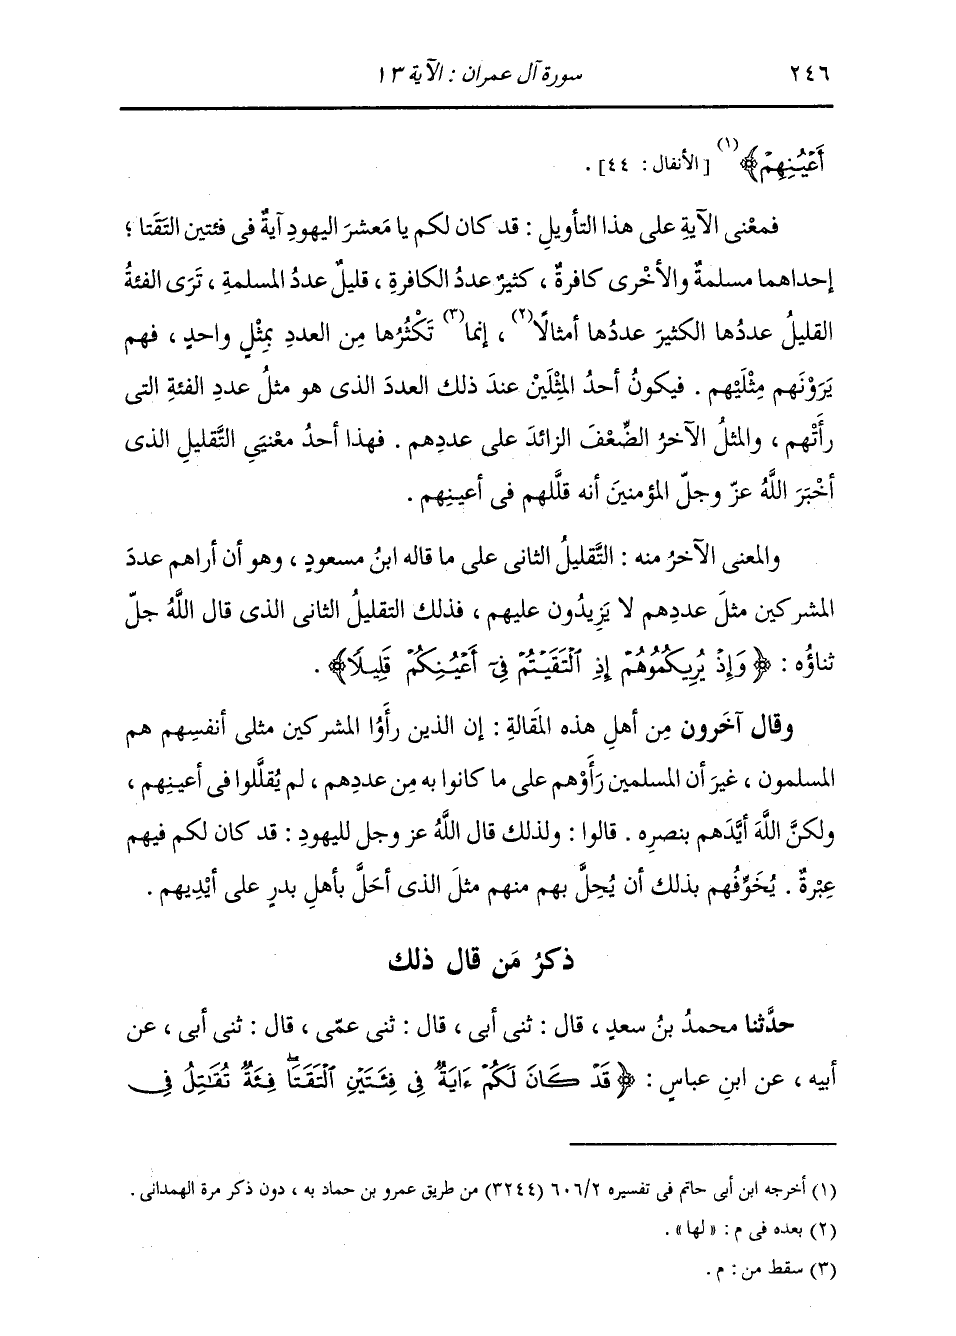 ٢٤٦ سورة آل عمران : الآية ١٣
أَعْيُنِهِمْ﴾(١) [الأنفال : ٤٤] .
فمعْنى الآيةِ على هذا التأويلِ : قد كان لكم يا مَعشرَ اليهودِ آيةٌ فى فئتين التَقَتا ؛
إحداهما مسلمةٌ والأخْرى كافرةٌ ، كثيرٌ عددُ الكافرةِ ، قليلٌ عددُ المسلمةِ ، تَرَى الفئةُ
القليلُ عددُها الكثيرَ عددُها أمثالًا(٢) ، إنما(٣) تَكْثُرُها مِن العددِ بمِثْلٍ واحدٍ ، فهم
يَرَوْنَهم مِثْلَيْهم . فيكونُ أحدُ المِثْلَيْن عندَ ذلك العددَ الذى هو مثلُ عددِ الفئةِ التى
رأَتْهم ، والمثلُ الآخرُ الضِّعْفَ الزائدَ على عددِهم . فهذا أحدُ معْنيَي التَّقليلِ الذى
أخْبَرَ اللَّهُ عزّ وجلّ المؤمنينَ أنه قلَّلهم فى أعينِهم .
والمعنى الآخرُ منه : التَّقليلُ الثانى على ما قاله ابنُ مسعودٍ ، وهو أن أراهم عددَ
المشركين مثلَ عددِهم لا يَزِيدُون عليهم ، فذلك التقليلُ الثانى الذى قال اللَّهُ جلّ
ثناؤُه : ﴿وَإِذْ يُرِيكُمُوهُمْ إِذِ ٱلْتَقَيْتُمْ فِىٓ أَعْيُنِكُمْ قَلِيلًا﴾ .
وقال آخَرون مِن أهلِ هذه المَقالةِ : إن الذين رأَوُا المشركين مثلى أنفسِهم هم
المسلمون ، غيرَ أن المسلمين رَأَوْهم على ما كانوا به مِن عددِهم ، لم يُقلَّلوا فى أعينِهم ،
ولكنَّ اللَّهَ أيَّدَهم بنصرِه . قالوا : ولذلك قال اللَّهُ عز وجل لليهودِ : قد كان لكم فيهم
عِبْرةٌ . يُخَوِّفُهم بذلك أن يُحِلَّ بهم منهم مثلَ الذى أحَلَّ بأهلِ بدرٍ على أيْدِيهم .
ذكرُ مَن قال ذلك
حدَّثنا محمدُ بنُ سعدٍ ، قال : ثنى أبى ، قال : ثنى عمّى ، قال : ثنى أبى ، عن
أبيه ، عن ابنِ عباسٍ : ﴿قَدْ كَانَ لَكُمْ ءَايَةٌ فِى فِئَتَيْنِ ٱلْتَقَتَاۖ فِئَةٌ تُقَٰتِلُ فِى
(١) أخرجه ابن أبى حاتم فى تفسيره ٦٠٦/٢ (٣٢٤٤) من طريق عمرو بن حماد به ، دون ذكر مرة الهمدانى .
(٢) بعده فى م : « لها» .
(٣) سقط من : م .